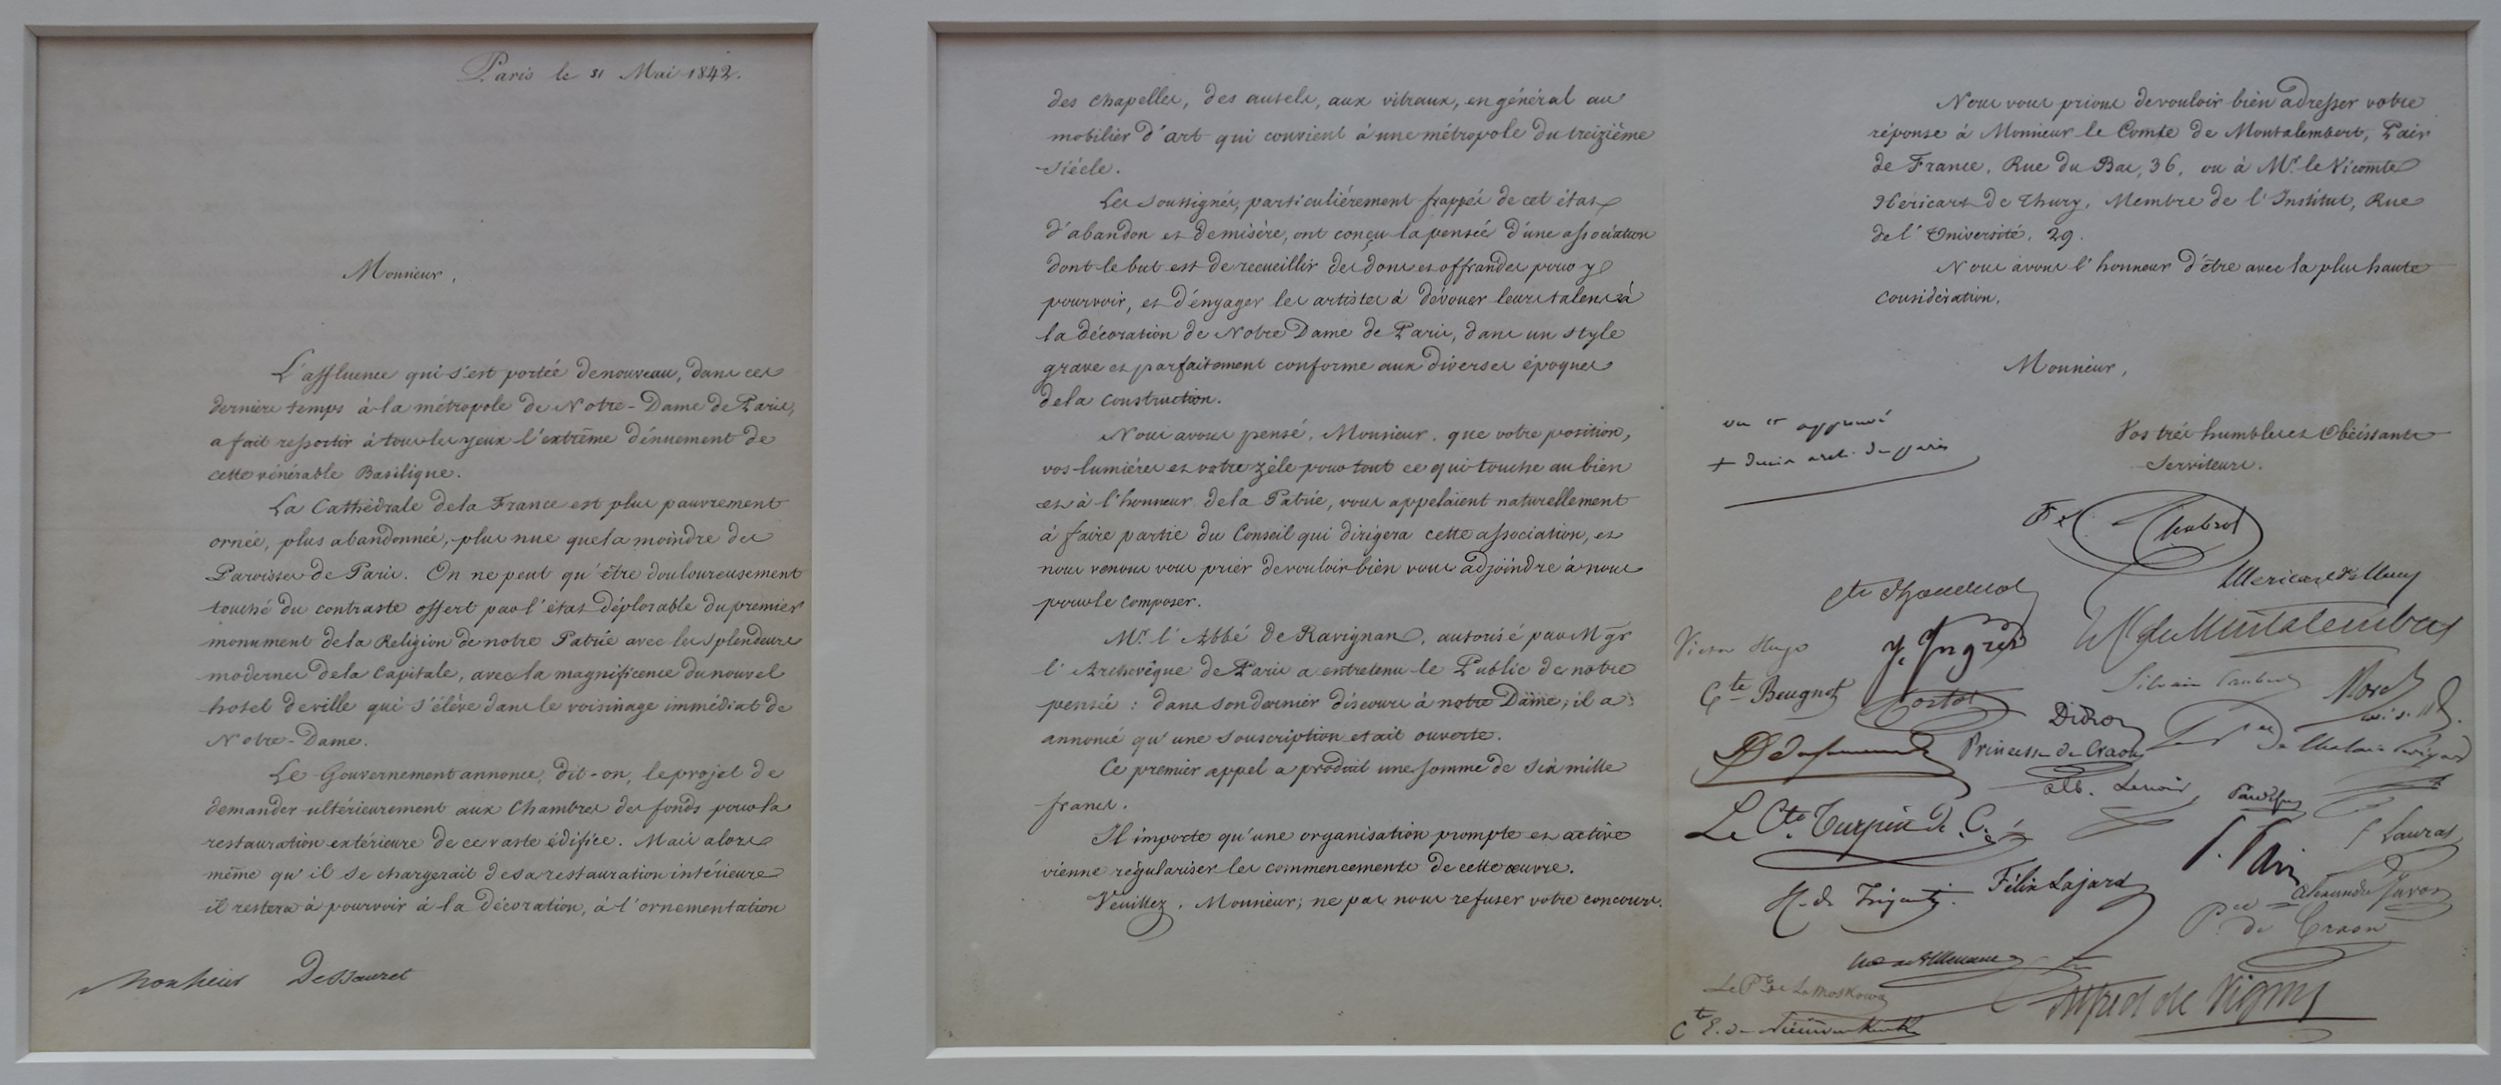 Paris le 31 Mai 1842.
Monsieur,
L'affluence qui s'est portée de nouveau, dans ces
derniers temps à la métropole de Notre-Dame de Paris,
a fait ressortir à tous les yeux l'extrême dénuement de
cette vénérable Basilique.
La Cathédrale de la France est plus pauvrement
ornée, plus abandonnée, plus nue que la moindre des
Paroisses de Paris. On ne peut qu'être douloureusement
touché du contraste offert par l'état déplorable du premier
monument de la Religion de notre Patrie avec les splendeurs
modernes de la Capitale, avec la magnificence du nouvel
hotel de ville qui s'élève dans le voisinage immédiat de
Notre-Dame.
Le Gouvernement annonce, dit-on, le projet de
demander ultérieurement aux Chambres des fonds pour la
restauration extérieure de ce vaste édifice. Mais alors
même qu'il se chargerait de sa restauration intérieure
il restera à pourvoir à la décoration, à l'ornementation
Monsieur De Bauret
des chapelles, des autels, aux vitraux, en général au
mobilier d'art qui convient à une métropole du treizième
siécle.
Les soussignés, particuliérement frappés de cet état
d'abandon et de misère, ont conçu la pensée d'une association
dont le but est de recueillir des dons et offrandes pour y
pourvoir, et d'engager les artistes à dévouer leurs talens à
la décoration de Notre Dame de Paris, dans un style
grave et parfaitement conforme aux diverses époques
de la construction.
Nous avons pensé, Monsieur, que votre position,
vos lumiéres et votre zèle pour tout ce qui touche au bien
et à l'honneur de la Patrie, vous appelaient naturellement
à faire partie du Conseil qui dirigera cette association, et
nous venons vous prier de vouloir bien vous adjoindre à nous
pour le composer.
Mr. l'Abbé de Ravignan, autorisé par Mgr
l'Archevêque de Paris a entretenu le Public de notre
pensée : dans son dernier discours à notre Dame; il a
annoncé qu'une souscription etait ouverte.
Ce premier appel a produit une somme de six mille
francs.
Il importe qu'une organisation prompte et active
vienne régulariser les commencements de cette œuvre.
Veuillez, Monsieur, ne pas nous refuser votre concours.
Nous vous prions de vouloir bien adresser votre
réponse à Monsieur le Comte de Montalembert, Pair
de France, Rue du Bac, 36, ou à Mr. le Vicomte
Héricart de Thury, Membre de l'Institut, Rue
de l'Université, 29.
Nous avons l'honneur d'être avec la plus haute
considération,
Monsieur,
vu et approuvé
+ denis arch. de paris
Vos très humbles et Obéissants
Serviteurs.
Chabrol
Héricart de Thury
Victor Hugo
J. Ingres
Cte de Montalembert
Cte Beugnot
Cortot
Didron
Princesse de Craon
Alb. Lenoir
Le Cte Turpin de C.
H. de Triqueti
Félix Lajard
Pce de Craon
Le Pce de La Moskowa
Alfred de Vigny
Cte E. de Nieuwerkerke